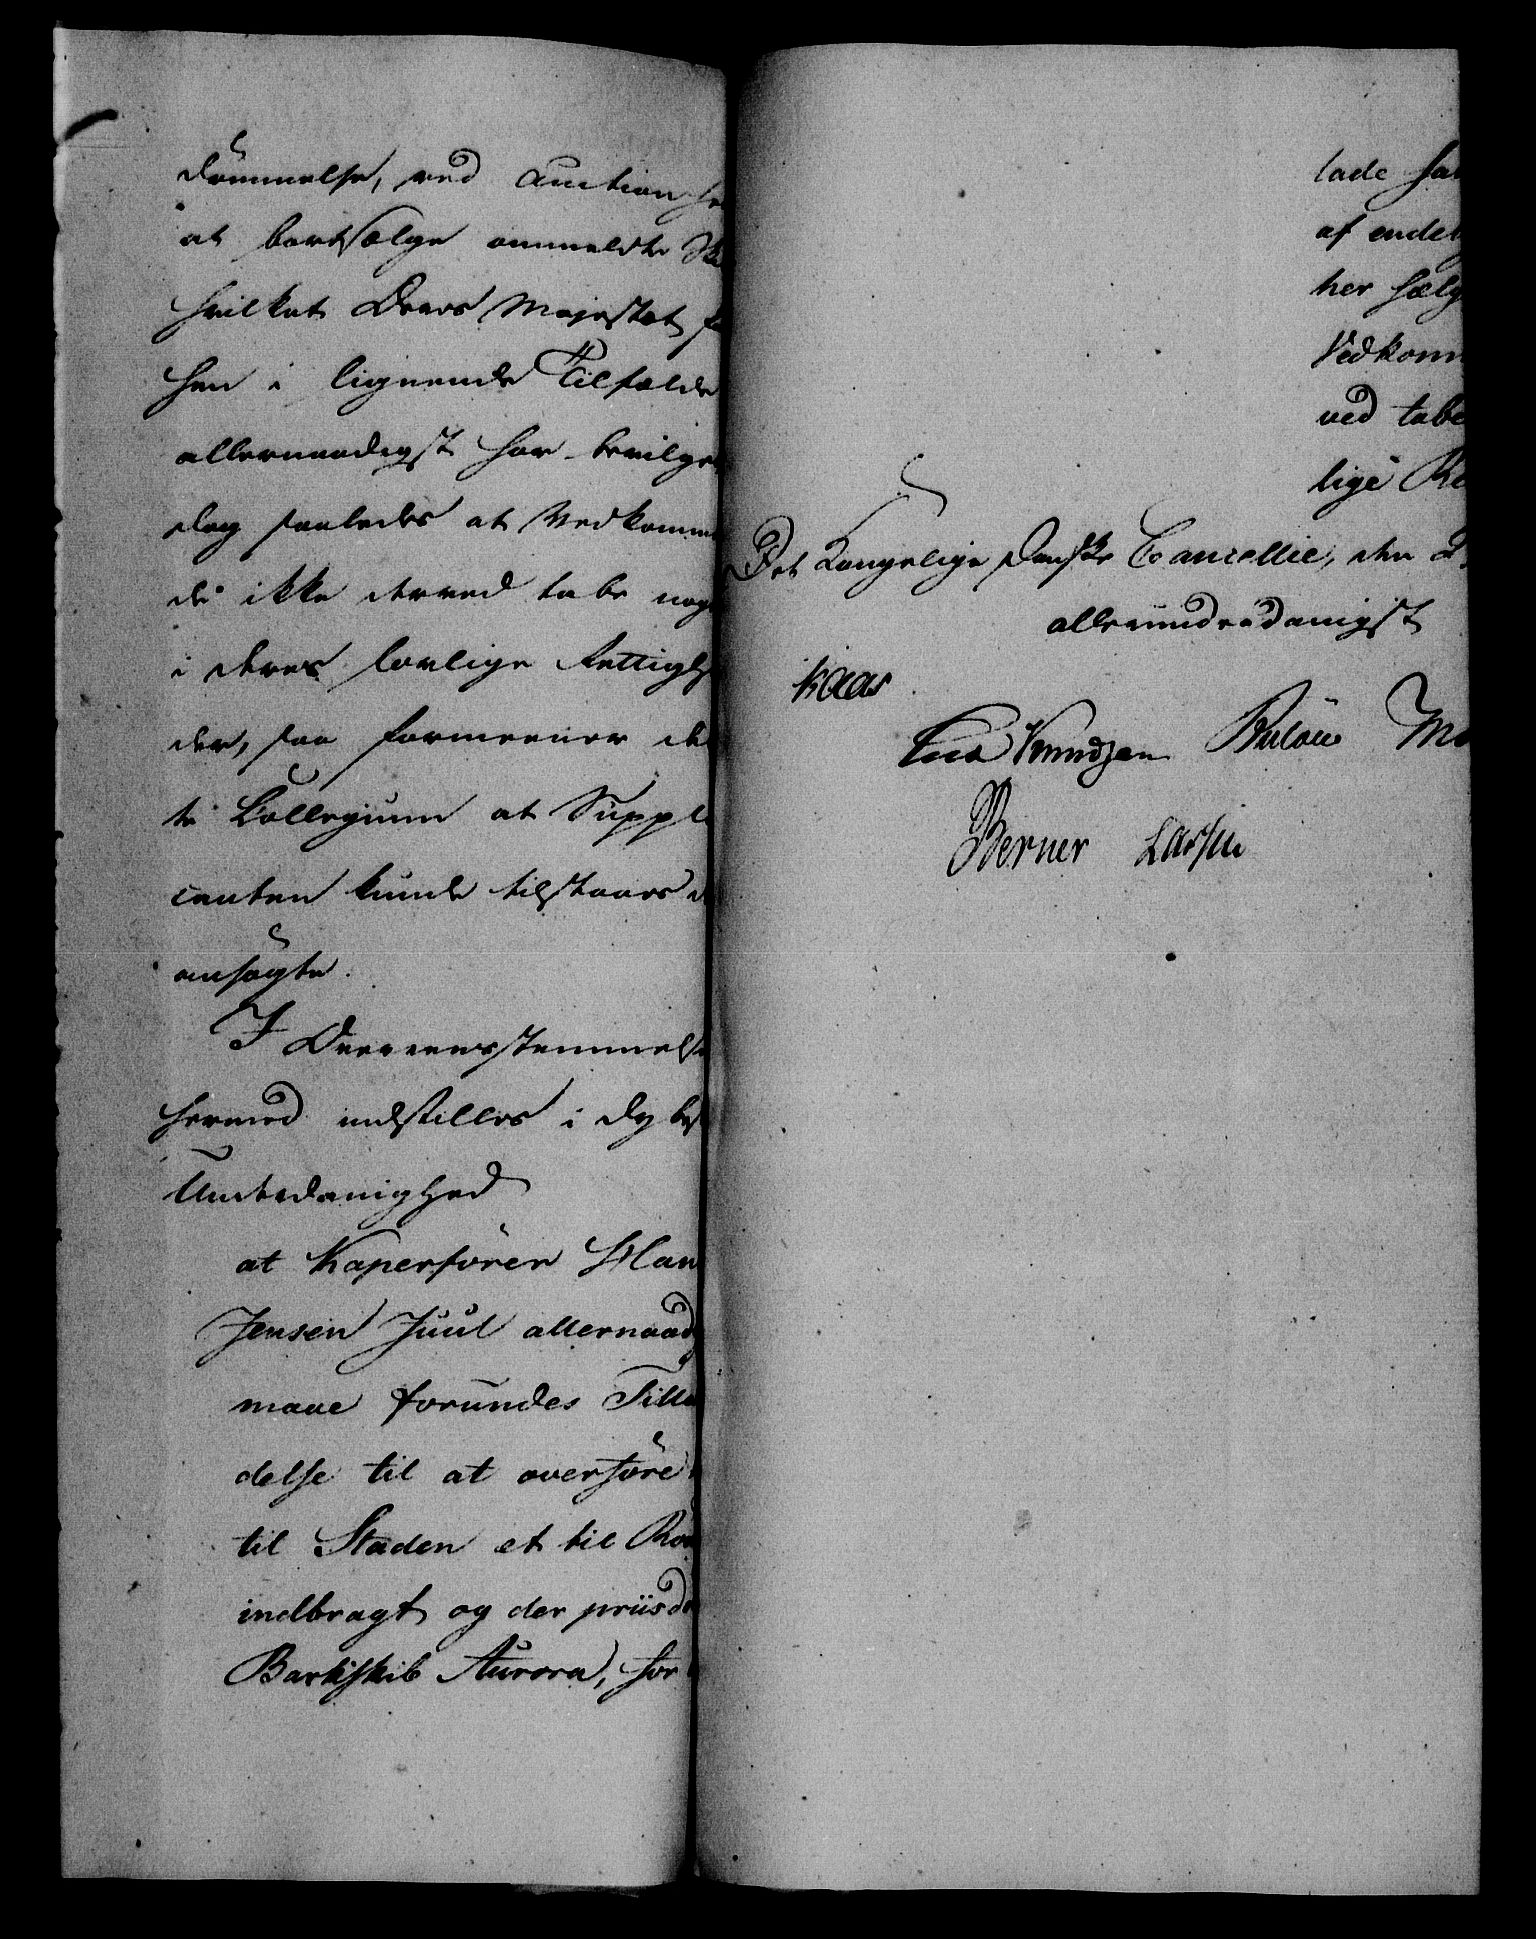 dömmelse, ved Auction her
at bortsælge anmeldte Ski
hvilket Deres Majestæt fo
hen i lignende Tilfælde
allernaadigst har bevilget
dog saaledes at Vedkomme
de ikke derved tabe noge
i deres lovlige Rettighe
der, saa formeener de
te Collegium at Suppli
canten kunde tilstaaes d
ansøgte.
I Overeensstemmelse
hermed indstilles i dybeste
Underdanighed
at Kaperfører Han
Jensen Juul allernaad
maae forundes Tilla
delse til at overføre
til Staden et til Rø
indbragt og der priisdø
Barkskib Aurora, for
lade ha
af endel
her sælg
Vedkom
ved tabe
lige Re
Det Kongelige Danske Cancellie, den 2
allerunderdanigst
Kaas
Knudsen Bülow Mo
Berner Larsen